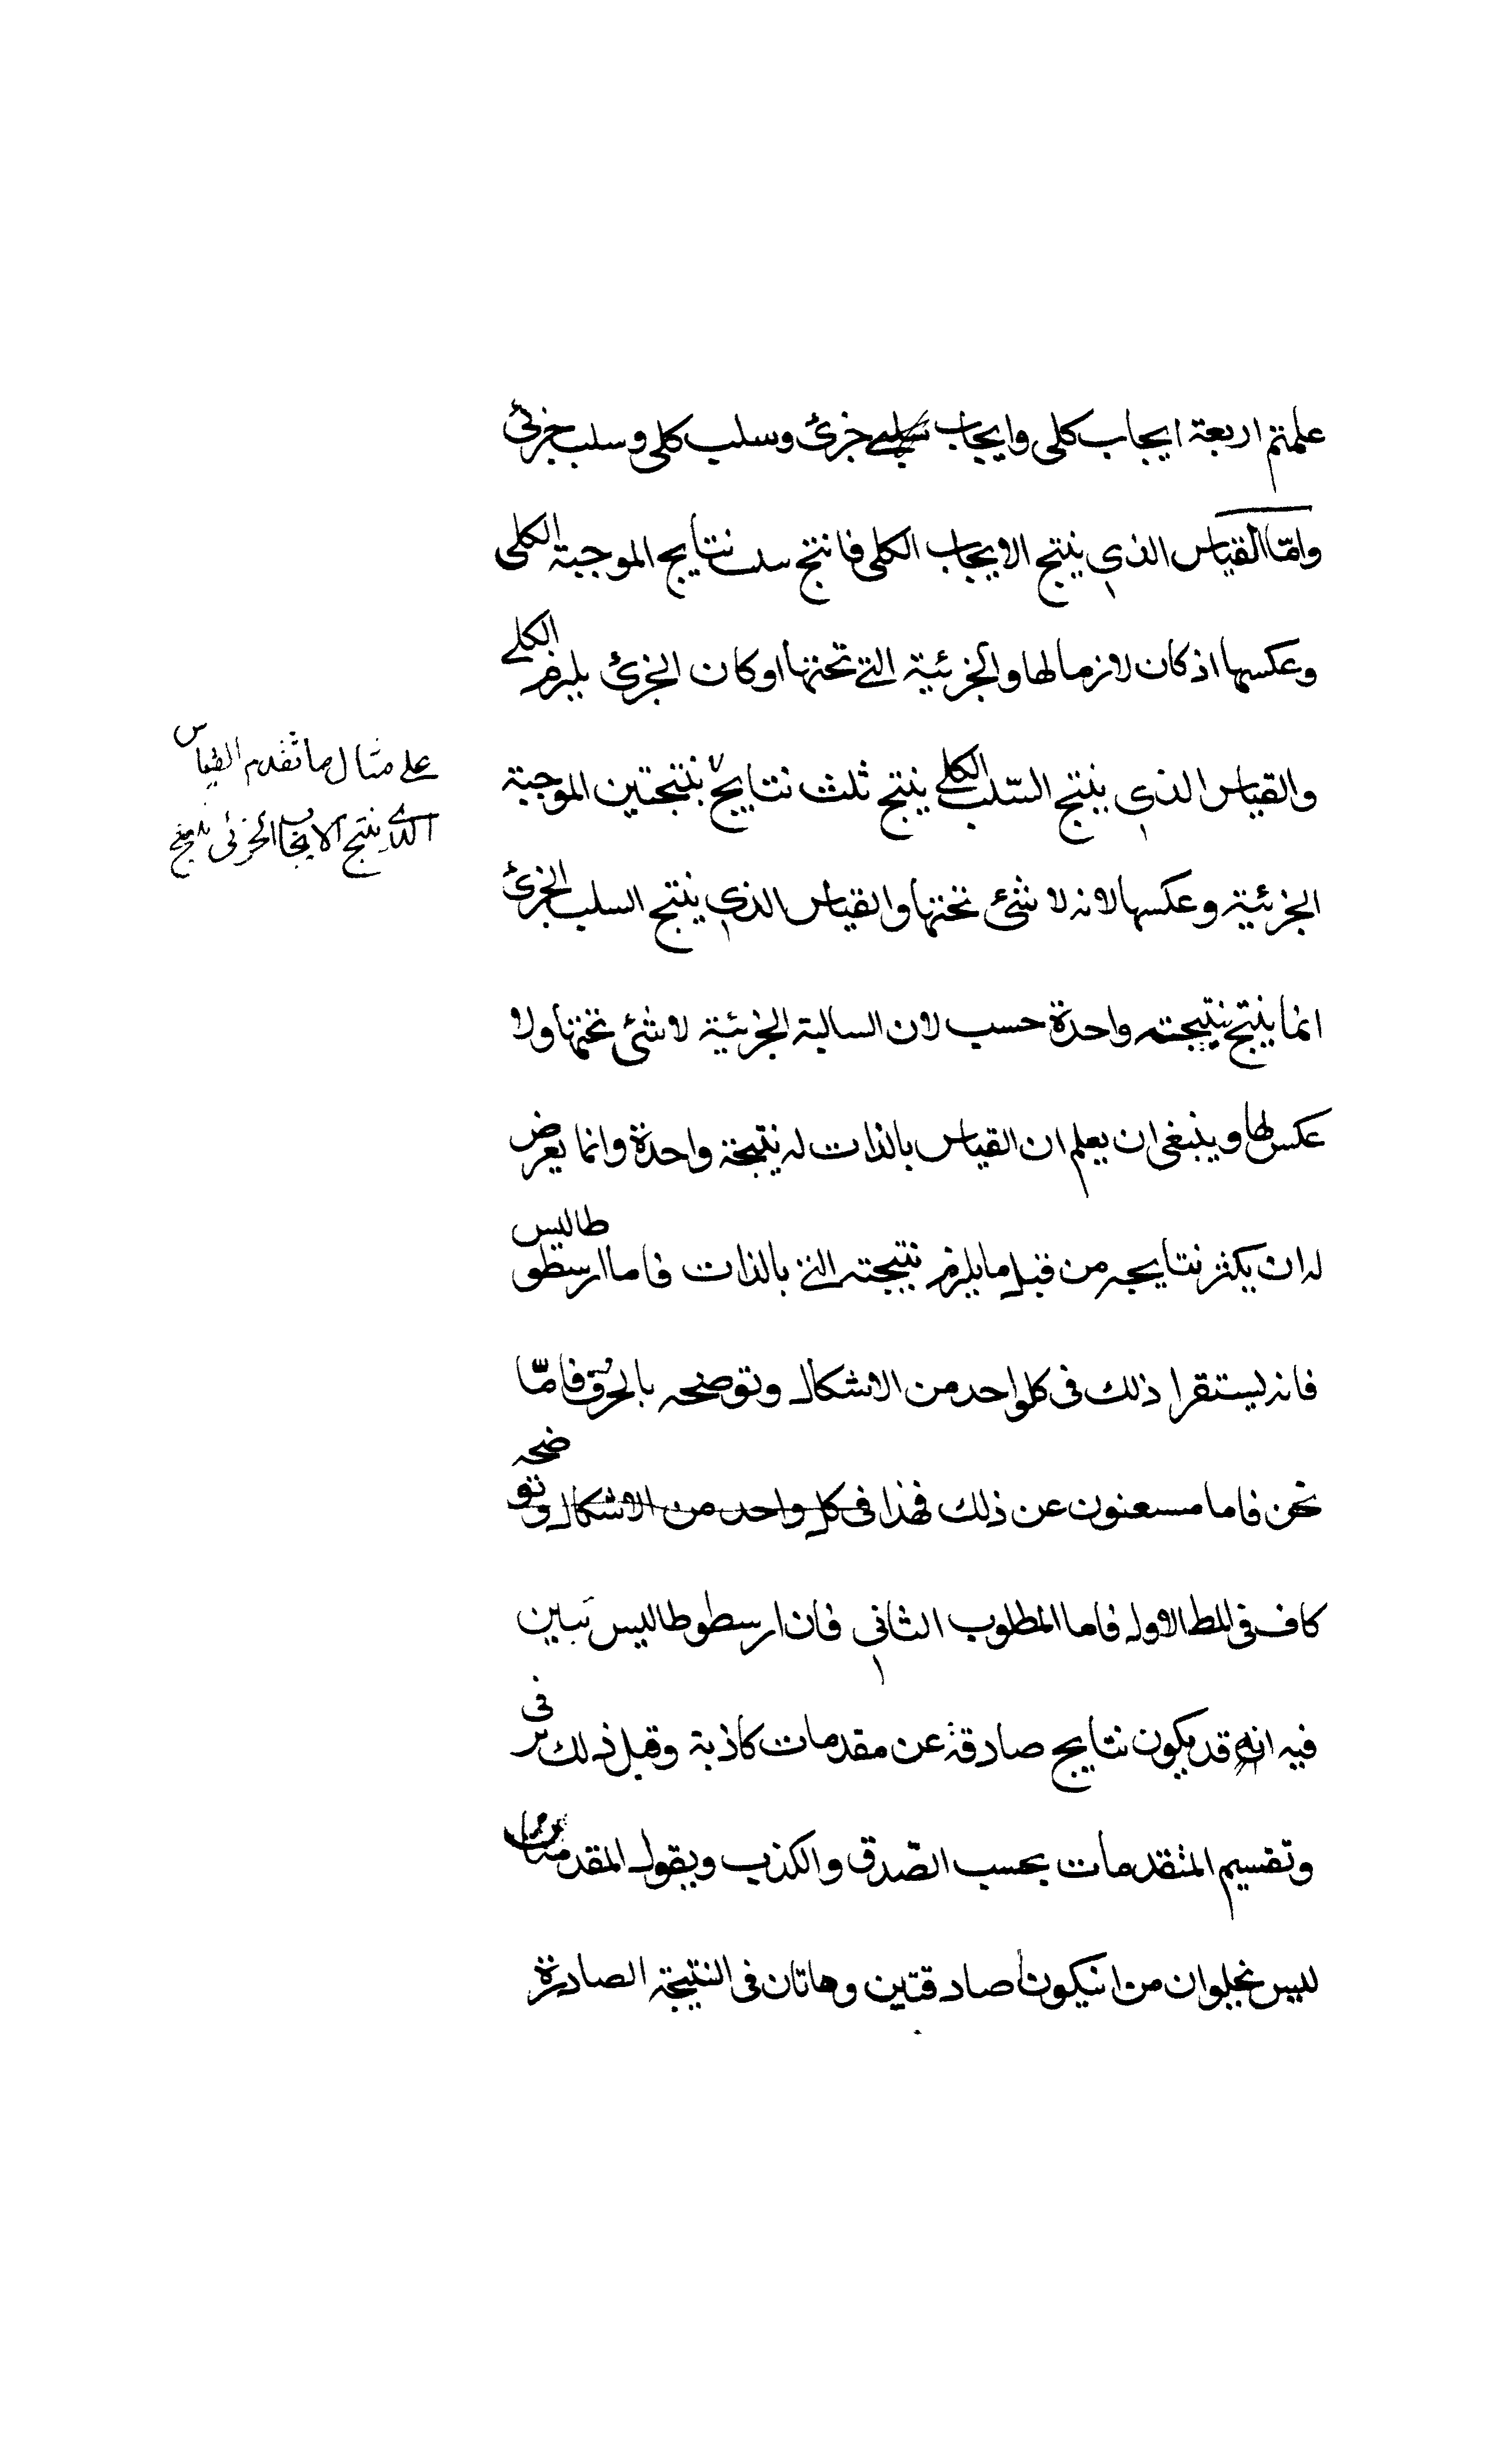 علمتم اربعة ايجاب كلى وايجاب جزئ وسلب كلى وسلب جزئى
وامّا القياس الذى ينتج الايجاب الكلى فانتج ثلث نتايج الموجبة الكلى
وعكسها اذ كان لازما لها والجزئية التے تحتها او كان الجزئ يلزم الكلے
والقياس الذى ينتج السّلب الكلے ينتج ثلث نتايج بنتجتين الموجبة
على مثال ما تقدم القياس
الذى ينتج الايجاب الجزئى ينتج
الجزئية وعكسها لانه لا شئ تحتها والقياس الذى ينتج السلب الجزئ
انما ينتج نتيجته واحدة حسب لان السالبة الجزئية لا شئ تحتها ولا
عكس لها وينبغى ان يعلم ان القياس بالذات له نتيجة واحدة وانما يعرض
له ان يكثر نتايجه من قبل ما يلزم نتيجته التى بالذات فاما ارسطوطاليس
فانه يستقرا ذلك فى كل واحد من الاشكال وتوضحه بالحرق فامّا
نحن فاما مسعنون عن ذلك فهذا فى كل واحد من الاشكال وتوضحه
كاف فى المط الاول فاما المطلوب الثانى فان ارسطوطاليس تبين
فيه انه قد يكون نتايج صادقة عن مقدمات كاذبة وقبل ذلك
وتقسيم المتقدمات بحسب الصّدق والكذب ويقول المقدمتان
ليس نجلوان من انيكونا صادقتين وهاتان فى النتيجة الصادرة